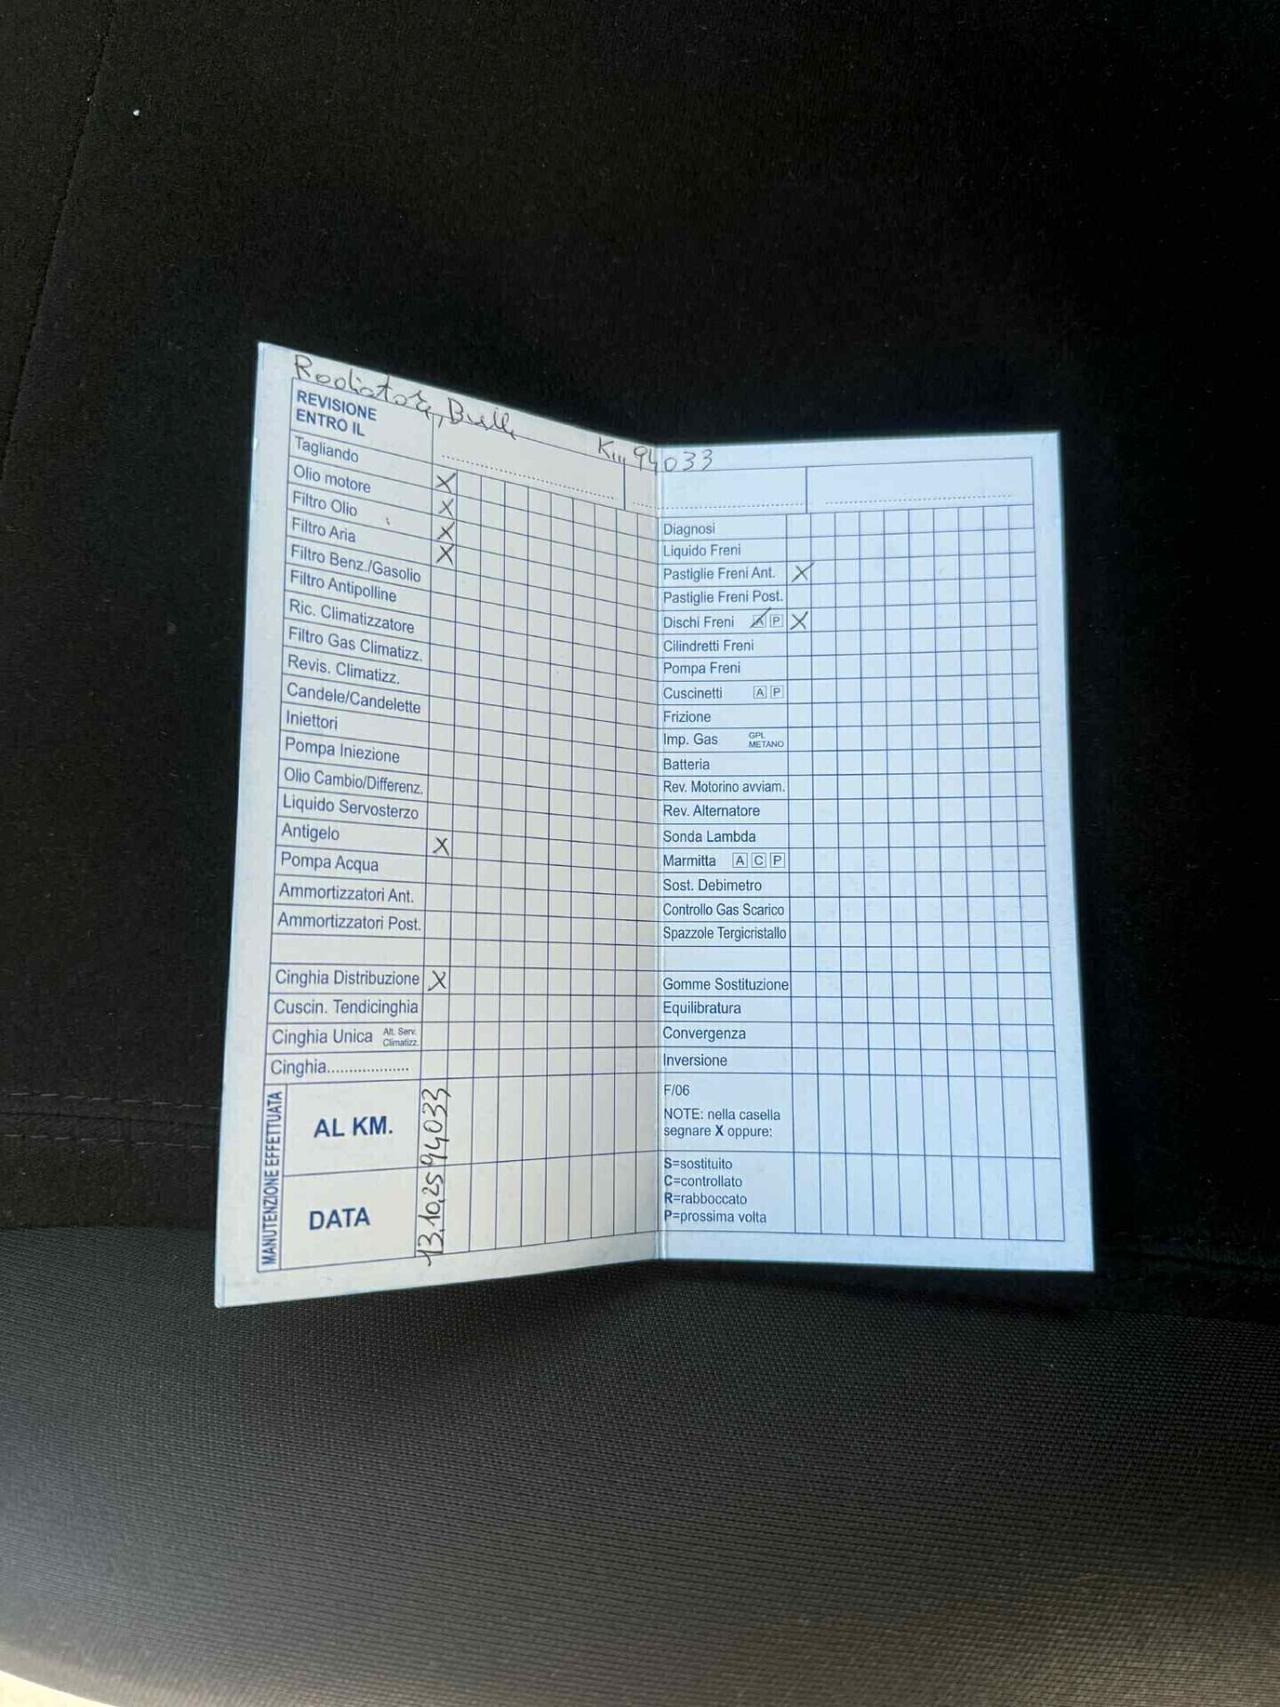 Radiatore, Bulli
Km 94033
REVISIONE
ENTRO IL
Tagliando
Olio motore X
Filtro Olio X
Filtro Aria X
Filtro Benz./Gasolio X
Filtro Antipolline
Ric. Climatizzatore
Filtro Gas Climatizz.
Revis. Climatizz.
Candele/Candelette
Iniettori
Pompa Iniezione
Olio Cambio/Differenz.
Liquido Servosterzo
Antigelo X
Pompa Acqua
Ammortizzatori Ant.
Ammortizzatori Post.
Cinghia Distribuzione X
Cuscin. Tendicinghia
Cinghia Unica Alt. Serv. Climatizz.
Cinghia...................
MANUTENZIONE EFFETTUATA
AL KM. 94033
DATA 13.10.25
Diagnosi
Liquido Freni
Pastiglie Freni Ant. X
Pastiglie Freni Post.
Dischi Freni A P X
Cilindretti Freni
Pompa Freni
Cuscinetti A P
Frizione
Imp. Gas GPL METANO
Batteria
Rev. Motorino avviam.
Rev. Alternatore
Sonda Lambda
Marmitta A C P
Sost. Debimetro
Controllo Gas Scarico
Spazzole Tergicristallo
Gomme Sostituzione
Equilibratura
Convergenza
Inversione
F/06
NOTE: nella casella
segnare X oppure:
S=sostituito
C=controllato
R=rabboccato
P=prossima volta